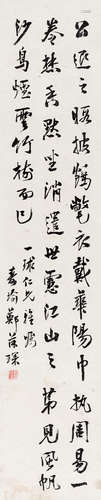 公退之暇披鶴氅衣戴華陽巾執周易一
卷焚香默坐消遣世慮江山之外第見風帆
沙鳥煙雲竹樹而已
一球仁兄雅屬
鄭